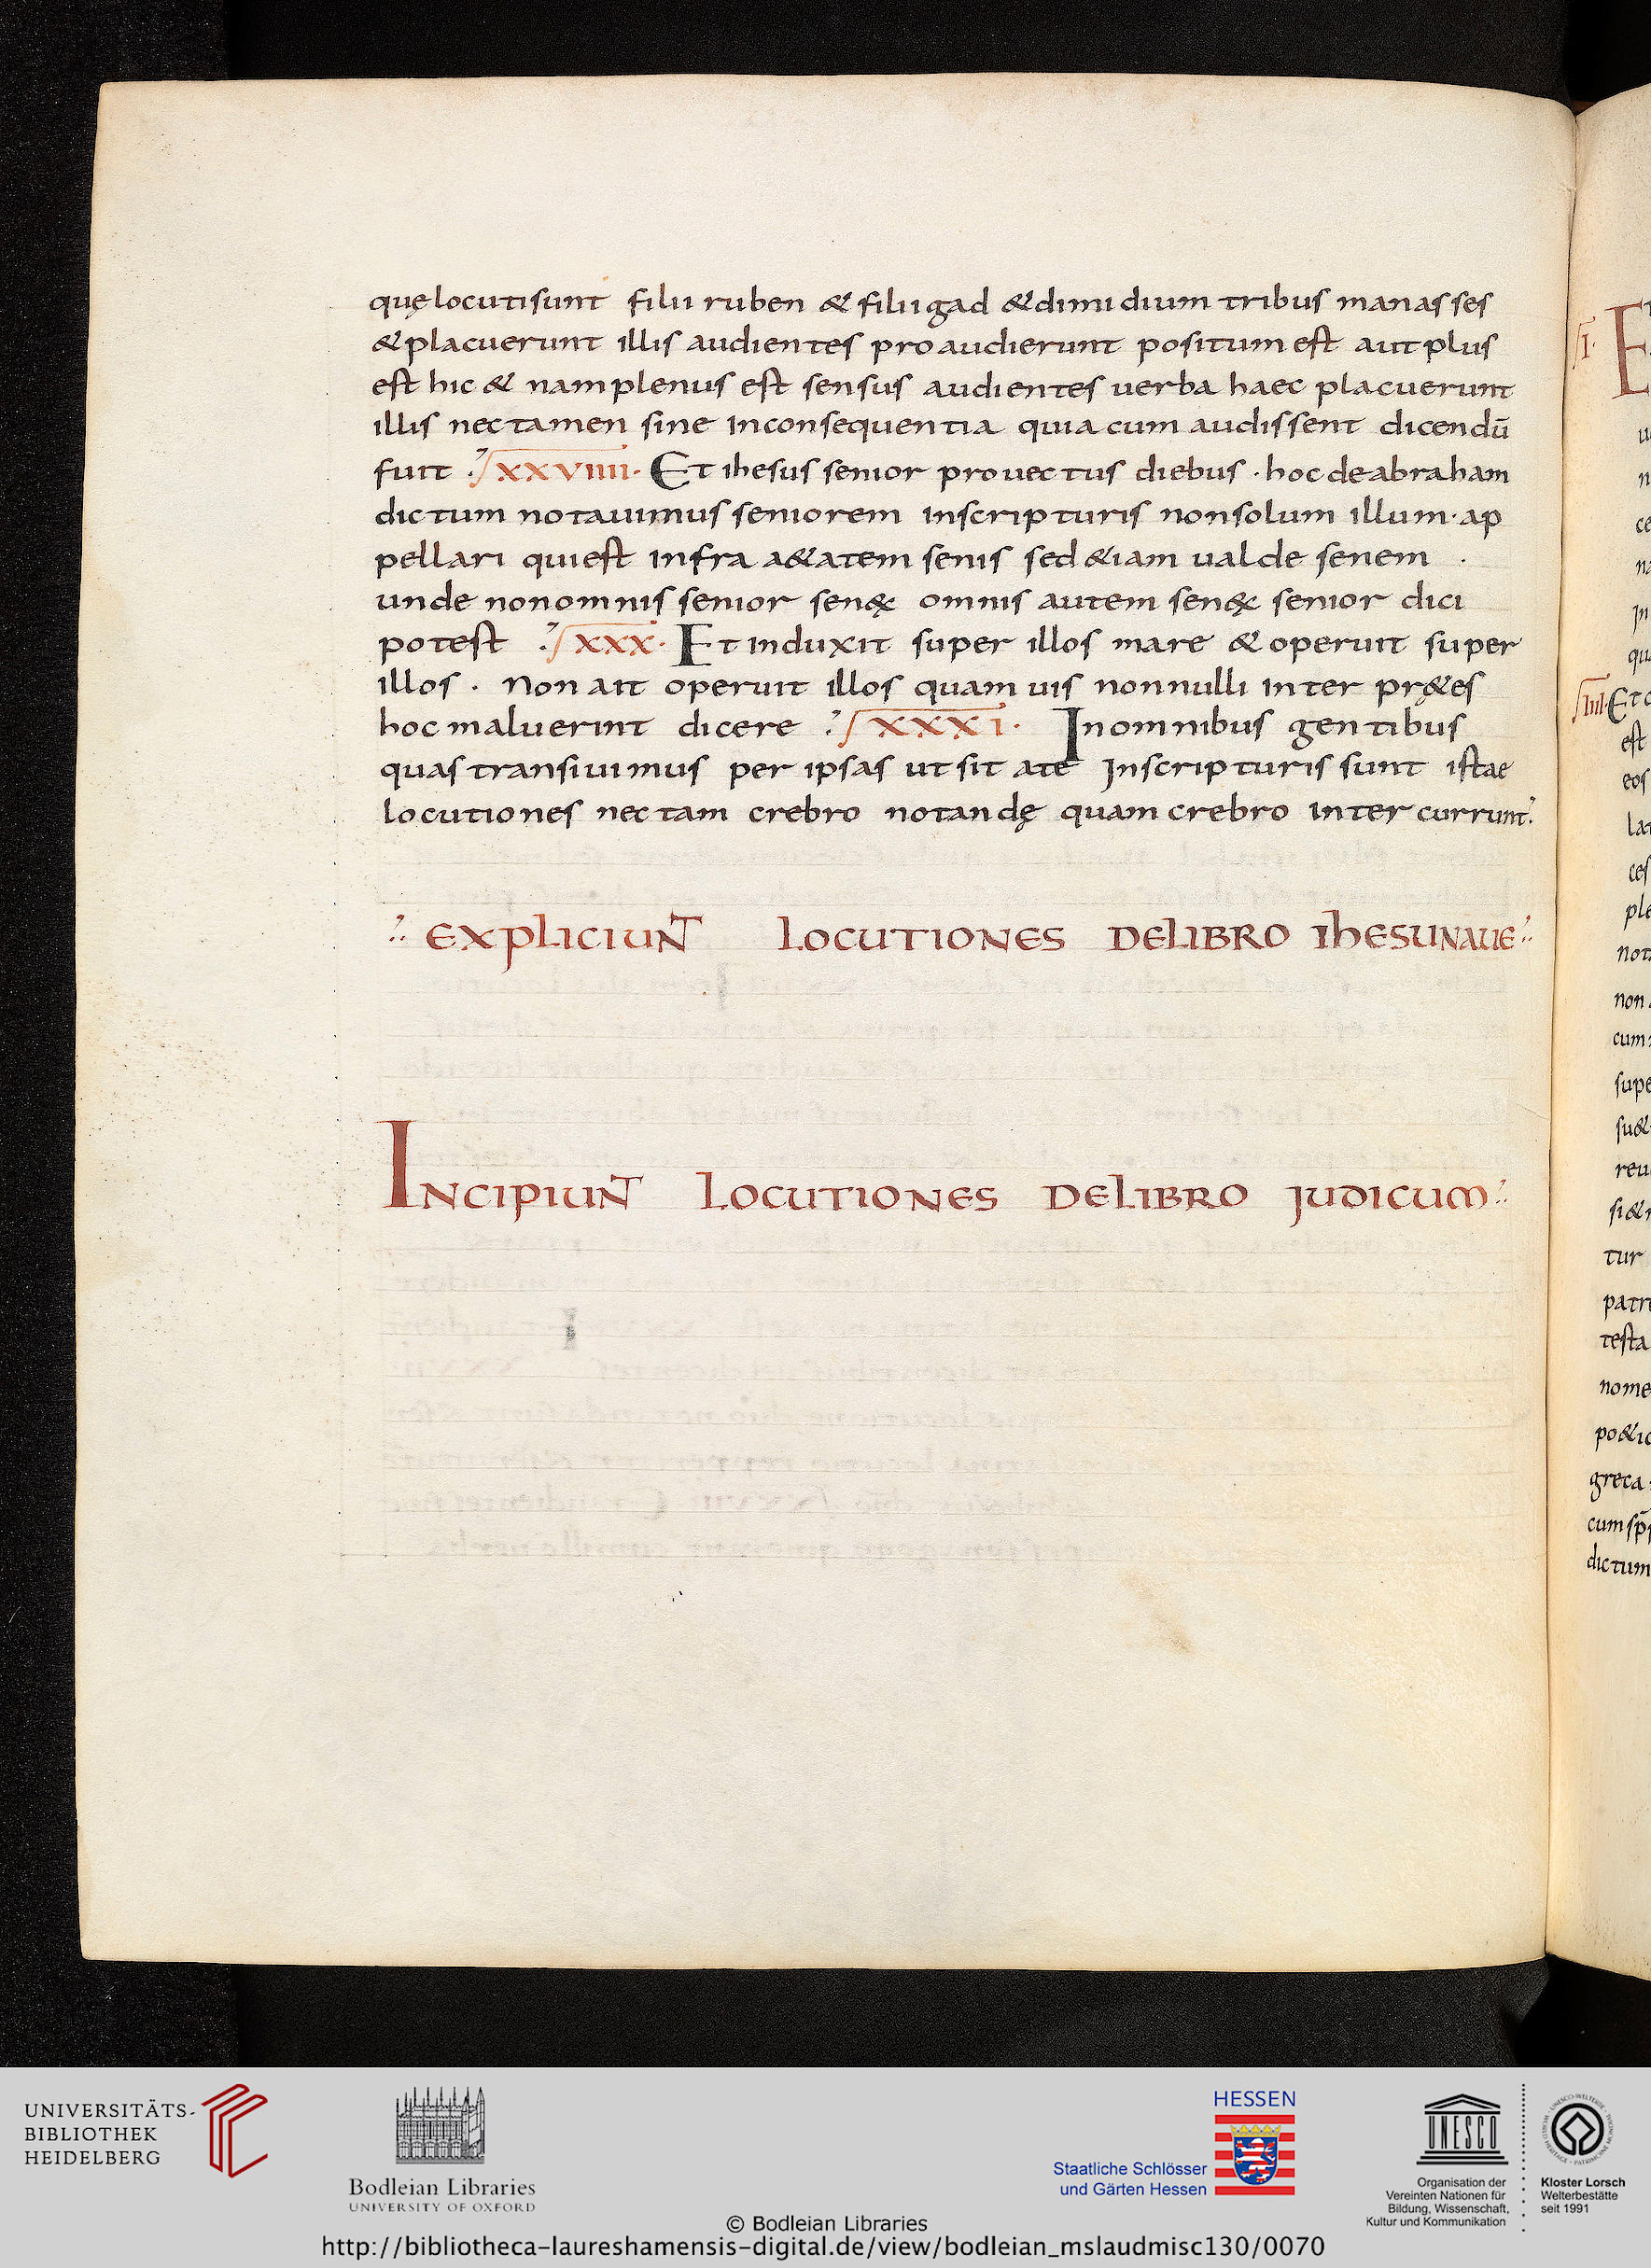 quę locuti sunt filii ruben & filii gad & dimidium tribus manasses
& placuerunt illis audientes pro audierunt positum est aut plus
est hic & nam plenus est sensus audientes uerba haec placuerunt
illis nec tamen sine inconsequentia quia cum audissent dicendū
fuit XXVIIII· Et ihesus senior prouectus diebus · hoc de abraham
dictum notauimus seniorem in scripturis non solum illum· ap
pellari qui est infra a&atem senis sed &iam ualde senem ·
unde non omnis senior sen&x omnis autem sen&x senior dici
potest XXX· Et induxit super illos mare & operuit super
illos · Non ait operuit illos quam uis nonnulli interpr&es
hoc maluerint dicere XXXI· In omnibus gentibus
quas transiuimus per ipsas ut sit a te In scripturis sunt istae
locutiones nec tam crebro notandę quam crebro intercurrunt
EXPLICIUNT LOCUTIONES DE LIBRO IHESU NAUE
INCIPIUNT LOCUTIONES DE LIBRO JUDICUM
I·
IIII· Et
est
eos
ces
non
cum
tur
testa
nome
greca
dictum
UNIVERSITÄTS-
BIBLIOTHEK
HEIDELBERG
Bodleian Libraries
UNIVERSITY OF OXFORD
HESSEN
Staatliche Schlösser
und Gärten Hessen
UNESCO
Organisation der
Vereinten Nationen für
Bildung, Wissenschaft,
Kultur und Kommunikation
Kloster Lorsch
Welterbestätte
seit 1991
© Bodleian Libraries
http://bibliotheca-laureshamensis-digital.de/view/bodleian_mslaudmisc130/0070